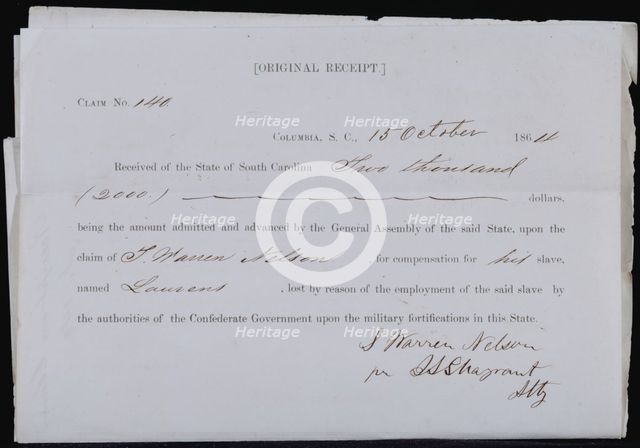 [ORIGINAL RECEIPT.]
CLAIM No. 140.
COLUMBIA, S. C., 15 October 1864
Received of the State of South Carolina Two thousand
(2000.) dollars,
being the amount admitted and advanced by the General Assembly of the said State, upon the
claim of J. Warren Nelson , for compensation for his slave,
named Laurens , lost by reason of the employment of the said slave by
the authorities of the Confederate Government upon the military fortifications in this State.
J Warren Nelson
pr
Atty
Heritage Heritage
Heritage Heritage
Heritage Heritage
Heritage
C